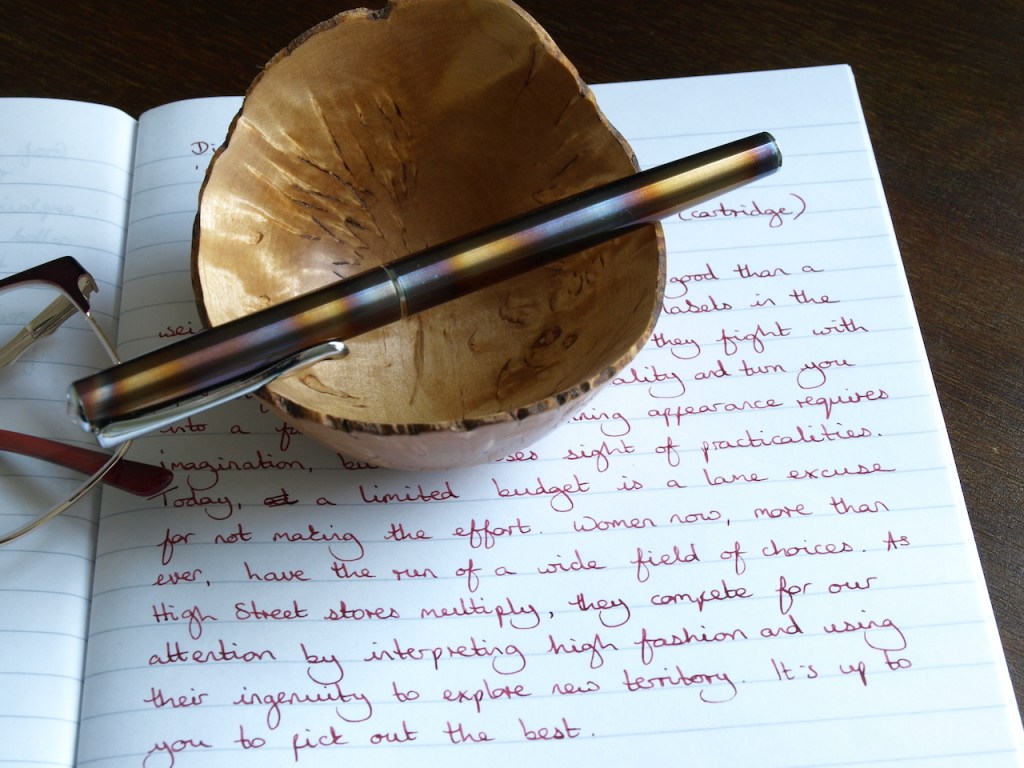 Di
(cartridge)
good than a
wei labels in the
they fight with
ality and turn you
into a fa ning appearance requires
imagination, bu ses sight of practicalities.
Today, a limited budget is a lame excuse
for not making the effort. Women now, more than
ever, have the run of a wide field of choices. As
High Street stores multiply, they compete for our
attention by interpreting high fashion and using
their ingenuity to explore new territory. It's up to
you to pick out the best.